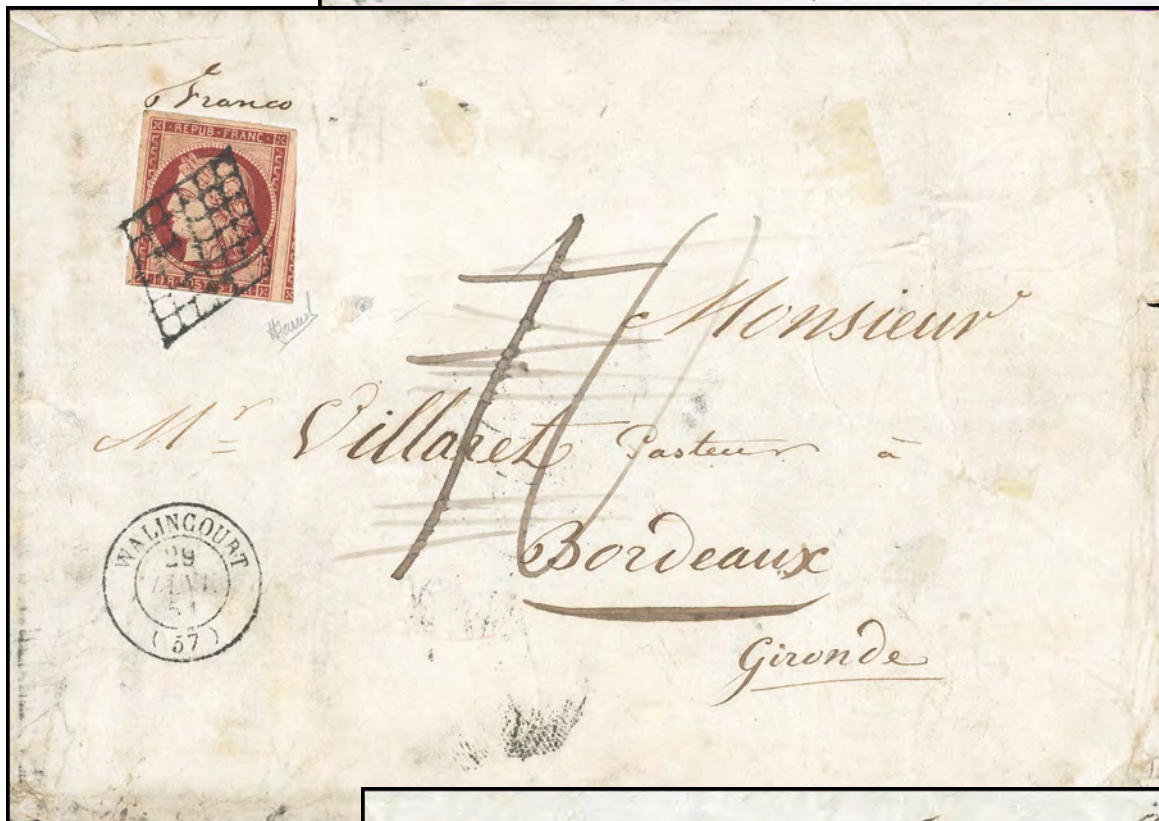 Franco
REPUB FRANC
Monsieur
Mr Villaret Pasteur à
Bordeaux
Gironde
WALINCOURT
29
JANV
51
(57)